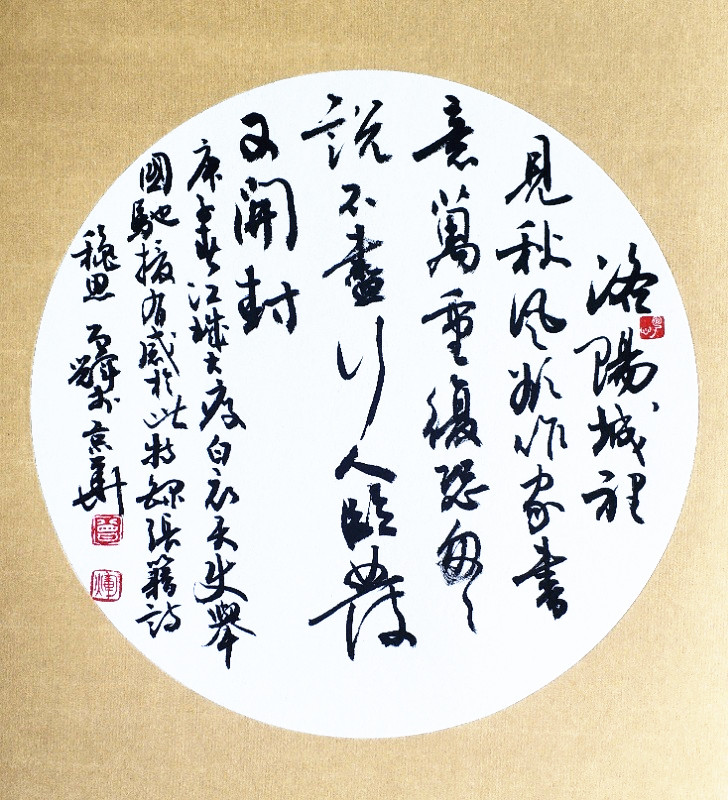 洛陽城裡
見秋風欲作家書
意萬重復恐匆々
說不盡行人臨發
又開封
庚子春江城大疫白衣天使舉
國馳援有感於此特錄張籍詩
穐思 於京華
曾
煇